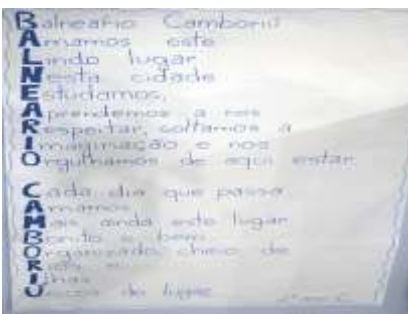 Balneário Camboriú
Amamos este
Lindo lugar
Nesta cidade
Estudamos,
Aprendemos a nos
Respeitar, soltamos a
Imaginação e nos
Orgulhamos de aqui estar
Cada dia que passa
Amamos
Mais ainda este lugar
Bonito e bem
Organizado, cheio de
Rios e
Ilhas